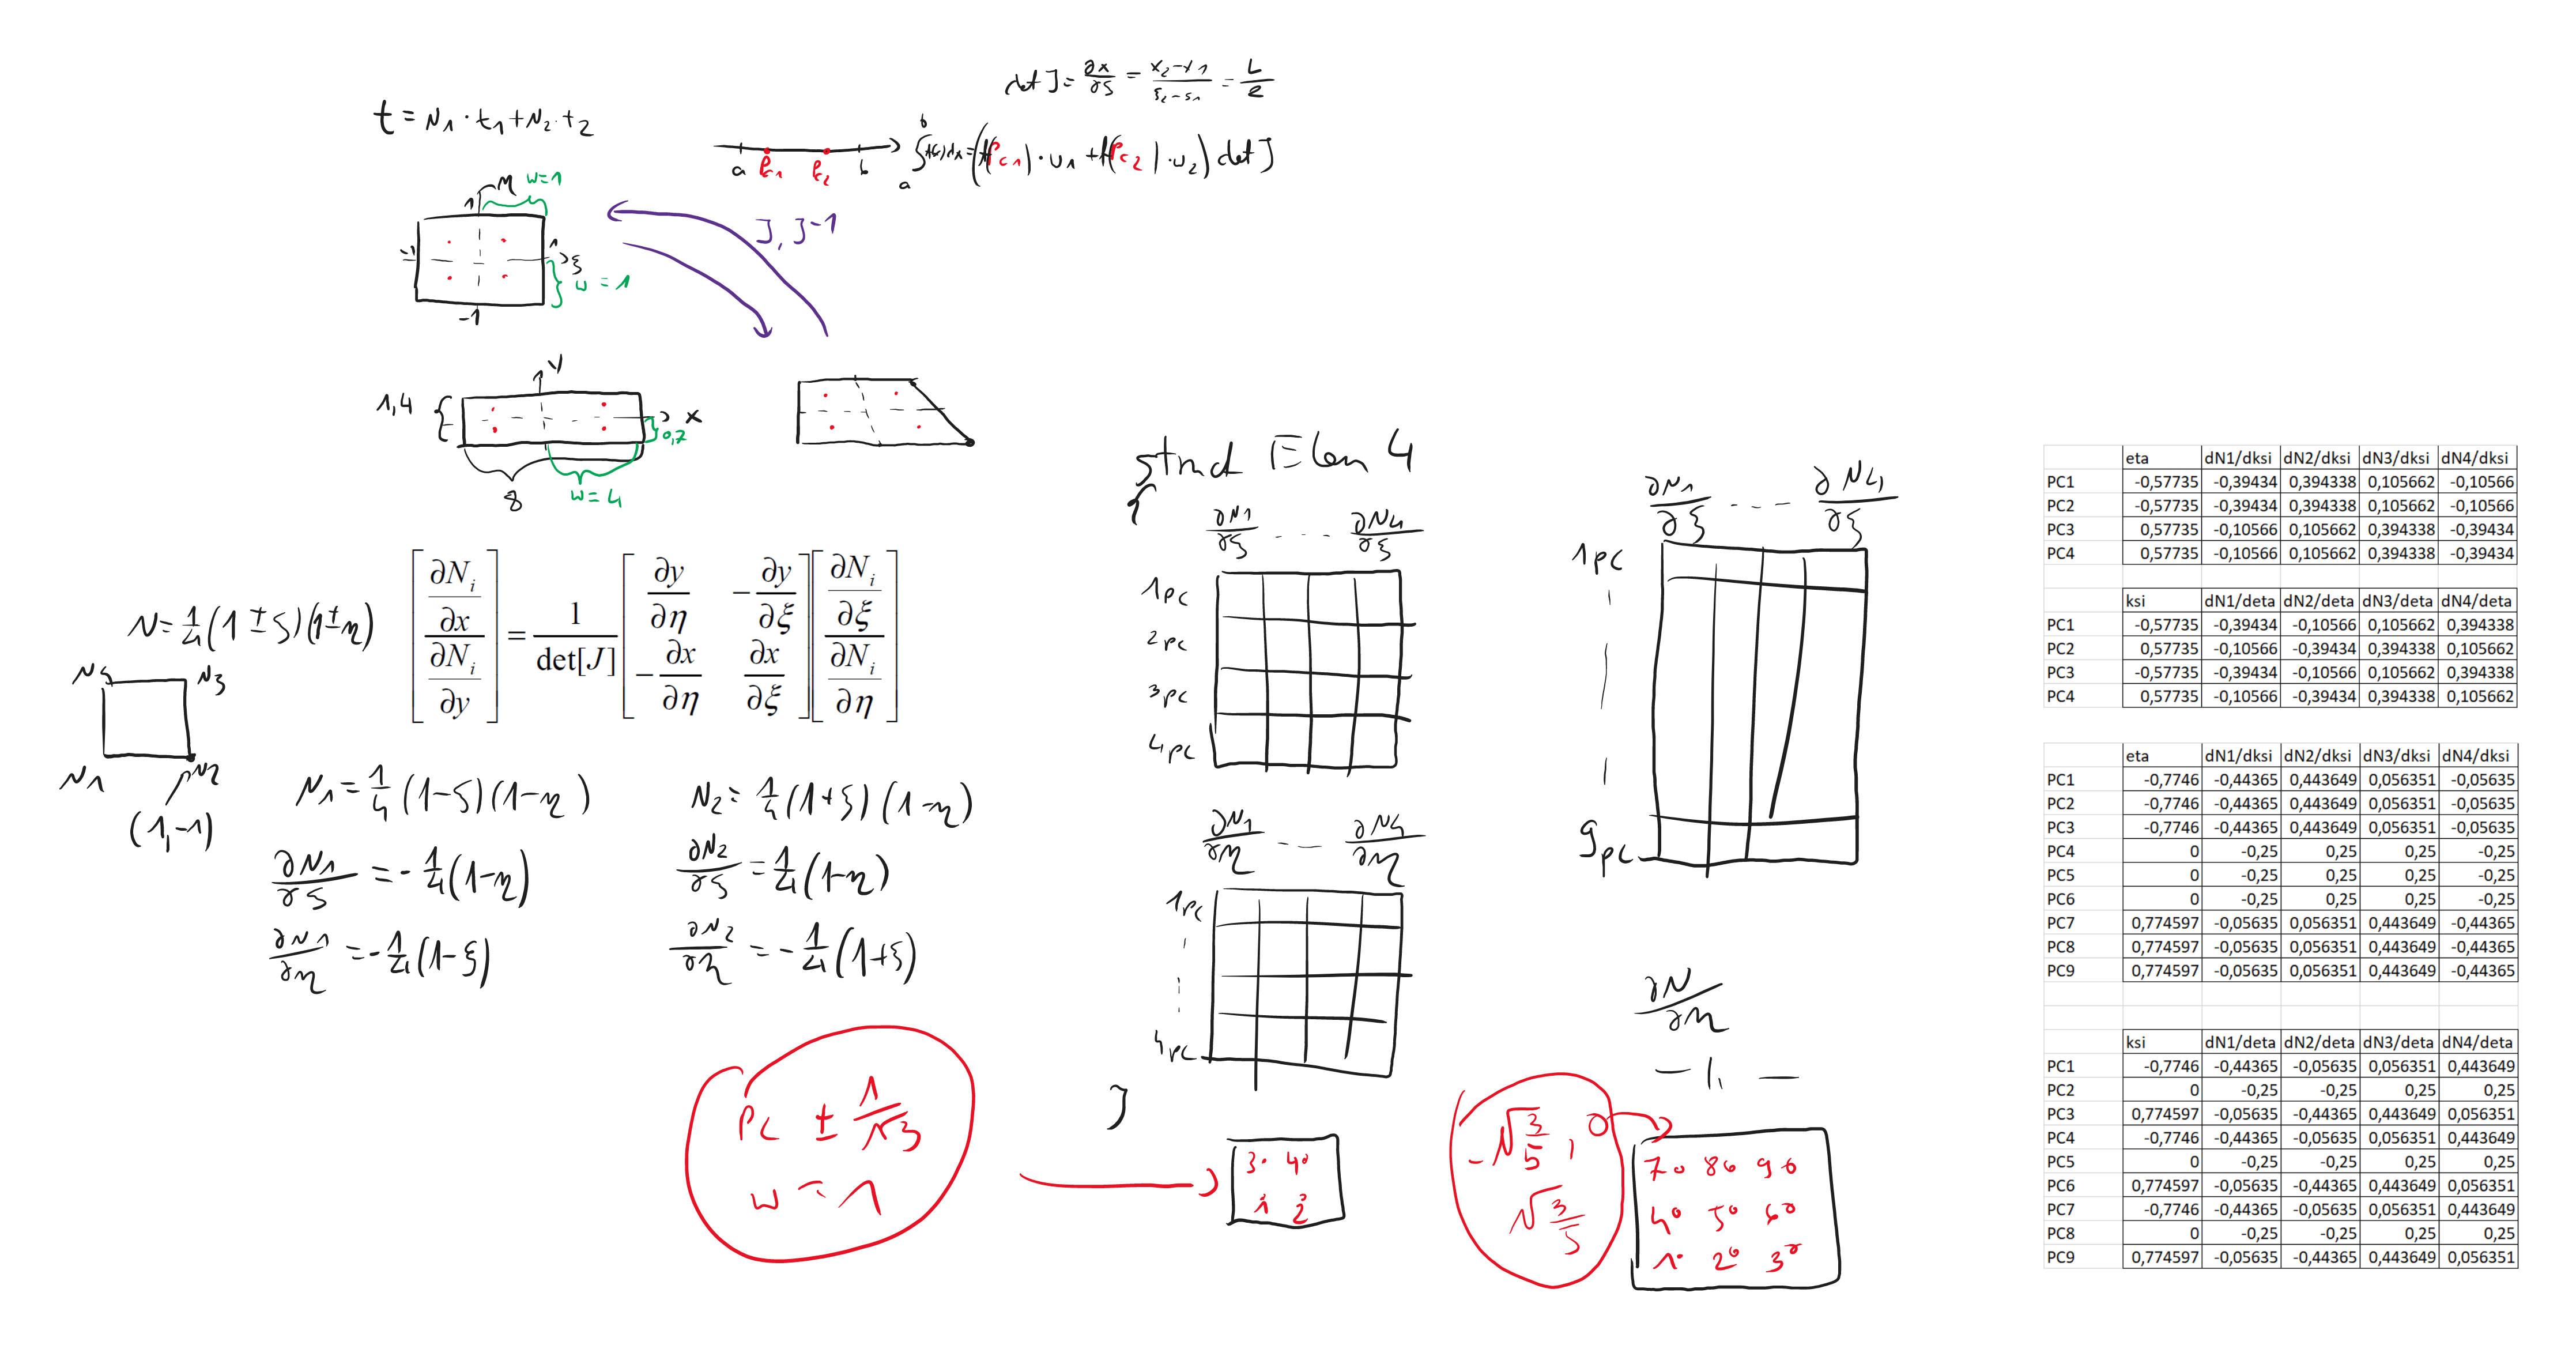 det J = ∂x/∂ξ = x₂-x₁/ξ₂-ξ₁ = L/2
t = N₁ · t₁ + N₂ · t₂
a Pc₁ Pc₂ b
∫ₐᵇ f(x)dx = (f(Pc₁) · w₁ + f(Pc₂) · w₂) det J
η w=1
1
-1 1 ξ
w = 1
-1
J, J-1
y
1,4 x
0,7
8 w=4
N = 1/4 (1 ± ξ)(1 ± η)
[∂Nᵢ/∂x ∂Nᵢ/∂y] = 1/det[J] [∂y/∂η -∂y/∂ξ -∂x/∂η ∂x/∂ξ] [∂Nᵢ/∂ξ ∂Nᵢ/∂η]
N4 N3
N1 N2
(1,-1)
N₁ = 1/4 (1-ξ)(1-η)
∂N₁/∂ξ = -1/4 (1-η)
∂N₁/∂η = -1/4 (1-ξ)
N₂ = 1/4 (1+ξ)(1-η)
∂N₂/∂ξ = 1/4 (1-η)
∂N₂/∂η = -1/4 (1+ξ)
Pc ± 1/√3
w = 1
struct Elem 4
{
∂N1/∂ξ - - - ∂N4/∂ξ
1pc
2pc
3pc
4pc
∂N1/∂η - - - ∂N4/∂η
1pc
4pc
}
3 4
1 2
∂N1/∂ξ - - - ∂N4/∂ξ
1pc
9pc
∂N/∂η
— 11 —
-√3/5, 0
√3/5
7 8 9
4 5 6
1 2 3
eta dN1/dksi dN2/dksi dN3/dksi dN4/dksi
PC1 -0,57735 -0,39434 0,394338 0,105662 -0,10566
PC2 -0,57735 -0,39434 0,394338 0,105662 -0,10566
PC3 0,57735 -0,10566 0,105662 0,394338 -0,39434
PC4 0,57735 -0,10566 0,105662 0,394338 -0,39434
ksi dN1/deta dN2/deta dN3/deta dN4/deta
PC1 -0,57735 -0,39434 -0,10566 0,105662 0,394338
PC2 0,57735 -0,10566 -0,39434 0,394338 0,105662
PC3 -0,57735 -0,39434 -0,10566 0,105662 0,394338
PC4 0,57735 -0,10566 -0,39434 0,394338 0,105662
eta dN1/dksi dN2/dksi dN3/dksi dN4/dksi
PC1 -0,7746 -0,44365 0,443649 0,056351 -0,05635
PC2 -0,7746 -0,44365 0,443649 0,056351 -0,05635
PC3 -0,7746 -0,44365 0,443649 0,056351 -0,05635
PC4 0 -0,25 0,25 0,25 -0,25
PC5 0 -0,25 0,25 0,25 -0,25
PC6 0 -0,25 0,25 0,25 -0,25
PC7 0,774597 -0,05635 0,056351 0,443649 -0,44365
PC8 0,774597 -0,05635 0,056351 0,443649 -0,44365
PC9 0,774597 -0,05635 0,056351 0,443649 -0,44365
ksi dN1/deta dN2/deta dN3/deta dN4/deta
PC1 -0,7746 -0,44365 -0,05635 0,056351 0,443649
PC2 0 -0,25 -0,25 0,25 0,25
PC3 0,774597 -0,05635 -0,44365 0,443649 0,056351
PC4 -0,7746 -0,44365 -0,05635 0,056351 0,443649
PC5 0 -0,25 -0,25 0,25 0,25
PC6 0,774597 -0,05635 -0,44365 0,443649 0,056351
PC7 -0,7746 -0,44365 -0,05635 0,056351 0,443649
PC8 0 -0,25 -0,25 0,25 0,25
PC9 0,774597 -0,05635 -0,44365 0,443649 0,056351